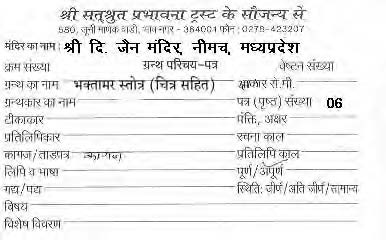 श्री सत्श्रुत प्रभावना ट्रस्ट के सौजन्य से
580, जूनी माणेक वाडी, भाव नगर - 364001 फोन : 0278-423207
मंदिर का नाम : श्री दि. जैन मंदिर, नीमच, मध्यप्रदेश
क्रम संख्या ग्रन्थ परिचय-पत्र वेष्टन संख्या
ग्रन्थ का नाम भक्तामर स्तोत्र (चित्र सहित) आकार से.मी.
ग्रन्थकार का नाम पत्र (पृष्ठ) संख्या 06
टीकाकार पंक्ति, अक्षर
प्रतिलिपिकार रचना काल
कागज/ताडपत्र कागज प्रतिलिपि काल
लिपि व भाषा पूर्ण/अपूर्ण
गद्य/पद्य स्थिति: जीर्ण/अति जीर्ण/सामान्य
विषय
विशेष विवरण